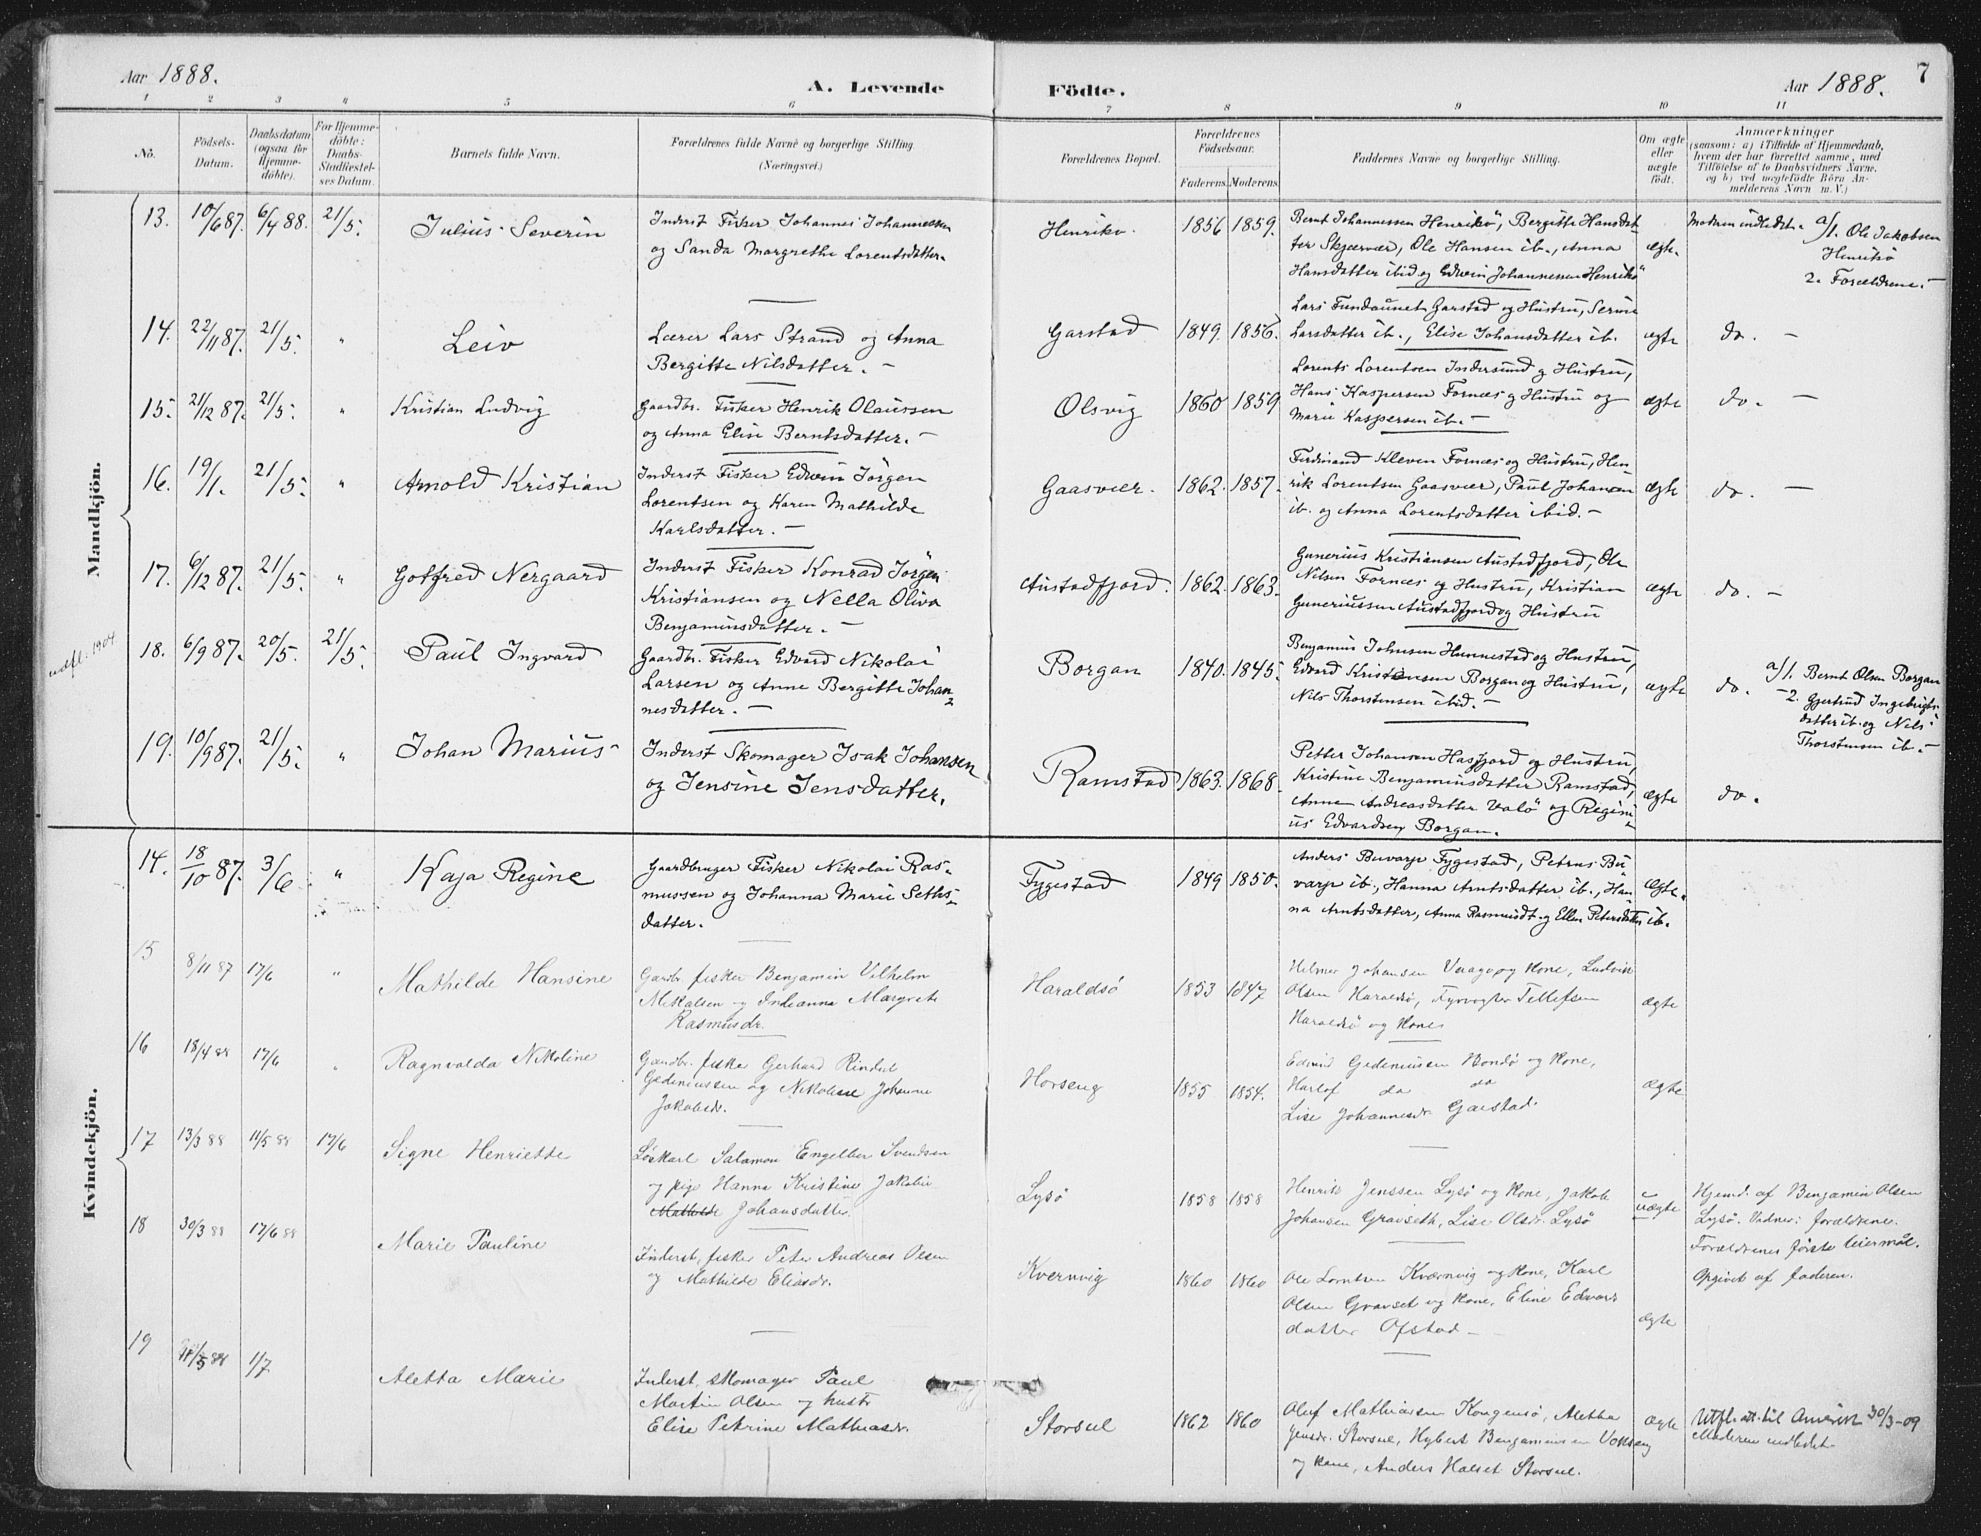 Aar 1888.
A. Levende Födte.
Aar 1888.
7
1 2 3 4 5 6 7 8 9 10 11
No.
Födsels-Datum.
Daabsdatum (ogsaa for Hjemme-döbte).
For Hjemme-döbte: Daabs-Stadfæstel-ses Datum.
Barnets fulde Navn.
Forældrenes fulde Navne og borgerlige Stilling
(Næringsvei.)
Forældrenes Bopæl.
Forældrenes Födselsaar.
Faderens. Moderens.
Faddernes Navne og borgerlige Stilling.
Om ægte eller uægte födt.
Anmærkninger
(saasom: a) i Tilfælde af Hjemmedaab,
hvem der har forrettet samme, med
Tilföielse af to Daabsvidners Navne,
og b) ved uægtefödte Börn An-
melderens Navn m. V.)
Mandkjön.
13. 10/6 87. 6/4 88. 21/5. Julius Severin
Inderst Fisker Johannes Johannesen
og Sanda Margrethe Lorentsdatter.
Henrikö. 1856 1859.
Bernt Johannessen Henrikö, Bergitte Hansdat
ter Skjærvær, Ole Hansen ib., Anna
Hansdatter ibid og Edvin Johannesen Henrikö
ægte.
Modren indledet. a/1. Ole Jakobsen
Henriksö
2. Forældrene. —
14. 22/11 87. 21/5. " Leiv
Lærer Lars Strand og Anna
Bergitte Nilsdatter. —
Garstad 1849. 1856.
Lars Fundaunet Garstad og Hustru, Serine
Larsdatter ib., Elise Johansdatter ib.
ægte do. —
15. 21/12 87. 21/5. " Kristian Ludvig
Gaardbr. Fisker Henrik Olaussen
og Anna Elise Berntsdatter. —
Olsvig 1860 1859
Lorents Lorentsen Indersund og Hustru,
Hans Kaspersen Fornæs og Hustru og
Marie Kaspersen ib. —
ægte do. —
16. 19/1. 21/5. " Arnold Kristian
Inderst Fisker Edvin Jörgen
Lorentsen og Karen Mathilde
Karlsdatter. —
Gaasvær. 1862. 1857.
Ferdinand Kleven Fornæs og Hustru, Hen-
rik Lorentsen Gaasvær, Paul Johansen
ib. og Anna Lorentsdatter ibid. —
ægte do. —
17. 6/12 87. 21/5. " Gotfred Nergaard
Inderst Fisker Konrad Jörgen
Kristiansen og Nella Oliva
Benjaminsdatter. —
Austadfjord. 1862. 1863.
Gunerius Kristiansen Austadfjord, Ole
Nilsen Fornæs og Hustru, Kristian
Guneriussen Austadfjord og Hustru
ægte do. —
udfl. 1904
18. 6/9 87. 20/5. 21/5. Paul Ingvard
Gaardbr. Fisker Edvard Nikolai
Larsen og Anne Bergitte Johan-
nesdatter. —
Borgan 1840. 1845.
Benjamin Johnsen Hunnestad og Hustru,
Edvard Kristensen Borgan og Hustru,
Nils Thorstensen ibid. —
ægte do.
a/1. Bernt Olsen Borgan
— 2. Gjertrud Ingebrigts-
datter ib. og Nils
Thorstensen ib. —
19. 10/9 87. 21/5. " Johan Marius
Inderst Skomager Isak Johansen
og Jensine Jensdatter.
Ramstad 1863. 1868.
Petter Johansen Hasfjord og Hustru,
Kristine Benjaminsdatter Ramstad,
Anne Andreasdatter Valö og Regini-
us Edvardsen Borgan.
ægte do.
Kvindekjön.
14. 18/10 87. 3/6 " Kaja Regine
Gaardbruger Fisker Nikolai Ras-
mussen og Johanna Marie Seths-
datter.
Fygestad 1849 1850.
Anders Buvarp Fygestad, Petrus Bu
varp ib., Hanna Arntsdatter ib., Han
na Arntsdatter, Anna Rasmusdt. og Ellen Petersdatter ib.
ægte.
15 8/11 87 17/6 " Mathilde Hansine
Gardbr. fisker Benjamin Vilhelm
Mikalsen og Indianna Margrete
Rasmusdr.
Haraldsö 1853 1847
Helmer Johansen Vaagö og Kone, Ludvik
Olsen Haraldsö, Fyrvogter Tellefsen
Haraldsö og Kone
ægte
16 18/4 88 17/6 " Ragnvalda Nikoline
Gaardbr. fisker Gerhard Rindal
Gedeniussen og Nikoline Johanne
Jakobsdr.
Horseng 1855 1854.
Edvind Gedeniussen Bondö og Kone,
Harlof do do
Lise Johannesdr. Garstad.
ægte
17 13/3 88 11/5 88 17/6 Signe Henriette
Löskarl Salamon Engelber Svendsen
og pige Hanna Kristine Jakobie
Mathilde Johansdatter.
Lysö 1858 1858
Henrik Jenssen Lysö og Kone, Jakob
Johansen Gravseth, Lise Olsdr. Lysö
uægte
Hjemd. af Benjamin Olsen
Lysö. Vidner: forældrene.
Forældrenes förste leiermål.
Opgivet af faderen.
18 30/3 88 17/6 88 Marie Pauline
Inderst, fisker Peter Andreas Olsen
og Mathilde Eliasdr.
Kvernvig 1860 1860
Ole Lorntsen Kværnvig og Kone, Karl
Olsen Gravset og Kone, Eline Edvars
datter Ofstad —
ægte
19 11/5 88 1/7 Aletta Marie
Inderst, skomager Paul
Martin Olsen og hustr
Elise Petrine Mathiasdr.
Storsul 1862 1860
Oluf Mathiasen Kongensö, Aletta
Jensdr. Storsul, Hybert Benjaminsen
og Kone, Anders Halset Storsul.
ægte
Utfl. att. til Amerika 30/3-09
Moderen indledet